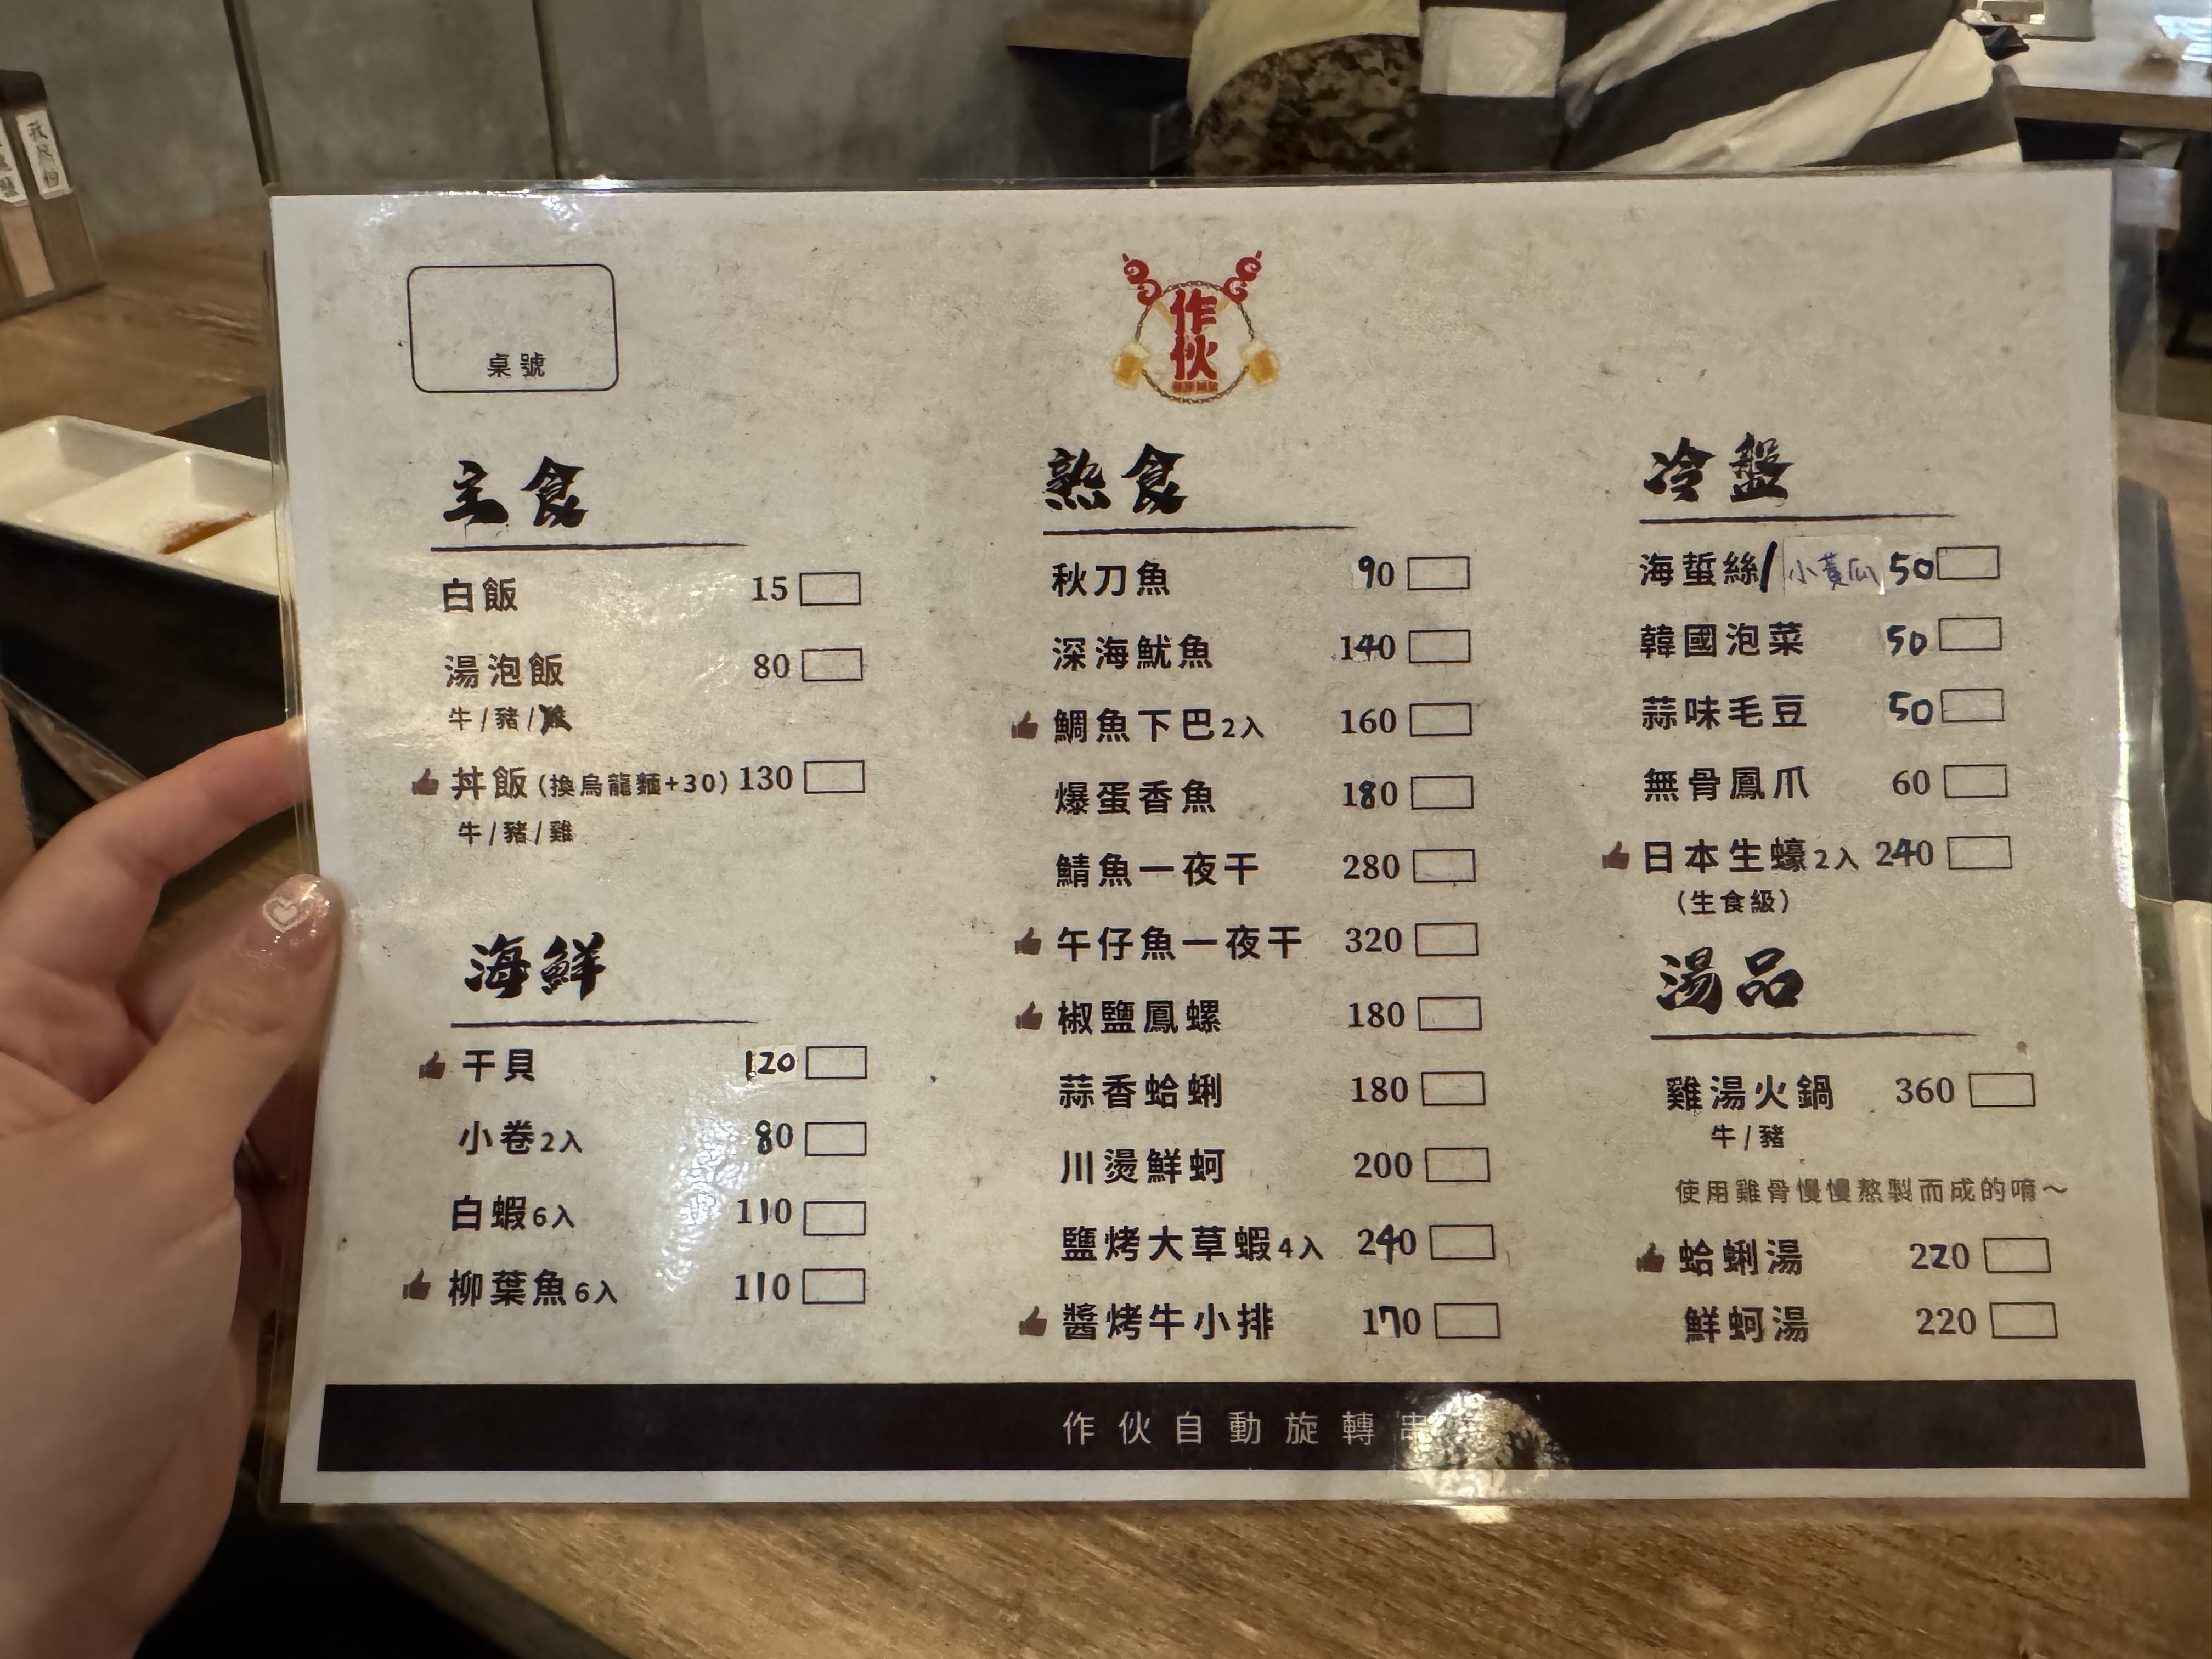 桌號
作伙
主食
白飯 15
湯泡飯 80
牛/豬/雞
丼飯(換烏龍麵+30) 130
牛/豬/雞
海鮮
干貝 120
小卷2入 80
白蝦6入 110
柳葉魚6入 110
熟食
秋刀魚 90
深海魷魚 140
鯛魚下巴2入 160
爆蛋香魚 180
鯖魚一夜干 280
午仔魚一夜干 320
椒鹽鳳螺 180
蒜香蛤蜊 180
川燙鮮蚵 200
鹽烤大草蝦4入 240
醬烤牛小排 170
冷盤
海蜇絲/小黃瓜 50
韓國泡菜 50
蒜味毛豆 50
無骨鳳爪 60
日本生蠔2入 240
(生食級)
湯品
雞湯火鍋 360
牛/豬
使用雞骨慢慢熬製而成的唷～
蛤蜊湯 220
鮮蚵湯 220
作伙自動旋轉串